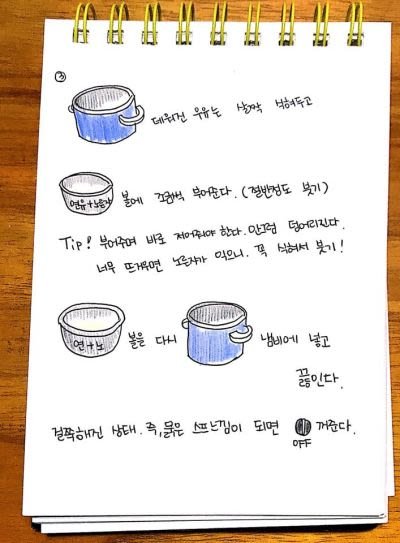 ③
데워진 우유는 살짝 식혀두고
연유+노른자 볼에 조금씩 부어준다. (절반정도 붓기)
Tip! 부어주며 바로 저어줘야 한다. 안그럼 덩어리진다.
너무 뜨거우면 노른자가 익으니. 꼭 식혀서 붓기!
연+노 볼을 다시 냄비에 넣고
끓인다.
걸쭉해진 상태. 즉, 묽은 스프느낌이 되면 꺼준다.
OFF